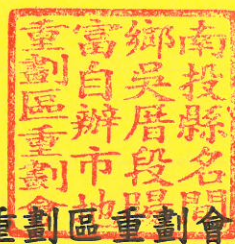 南投縣名間
鄉吳厝段開
富自辦市地
重劃區重劃會
重劃區重劃會